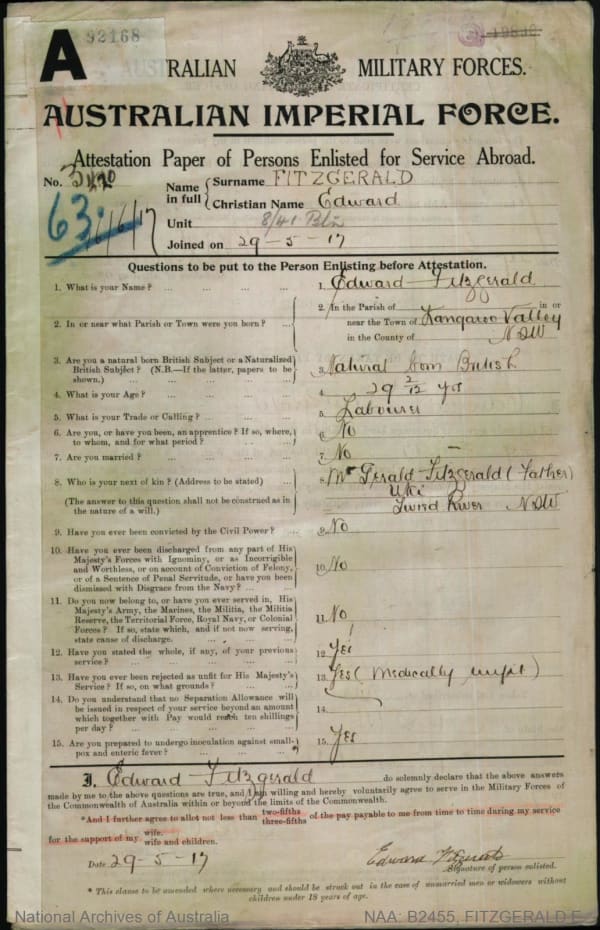 A
92168
19840
AUSTRALIAN MILITARY FORCES.
AUSTRALIAN IMPERIAL FORCE.
Attestation Paper of Persons Enlisted for Service Abroad.
No. 3420
63
16/6/17
Name in full { Surname FITZGERALD
Christian Name Edward
Unit 8/41 Btn
Joined on 29-5-17
Questions to be put to the Person Enlisting before Attestation.
1. What is your Name ? ... ... ... ... 1. Edward Fitzgerald
2. In or near what Parish or Town were you born ? ... 2. In the Parish of in or
near the Town of Kangaroo Valley
in the County of NSW
3. Are you a natural born British Subject or a Naturalized
British Subject ? (N.B.—If the latter, papers to be
shown.) ... ... ... ... 3. Natural born British
4. What is your Age ? ... ... ... ... 4. 29 2/12 yrs
5. What is your Trade or Calling ? ... ... ... 5. Labourer
6. Are you, or have you been, an apprentice ? If so, where,
to whom, and for what period ? ... ... 6. No
7. Are you married ? ... ... ... ... 7. No
8. Who is your next of kin ? (Address to be stated) ... 8. Mr Gerald Fitzgerald (Father)
Uki
(The answer to this question shall not be construed as in
the nature of a will.) Tweed River NSW
9. Have you ever been convicted by the Civil Power ? ... 9. No
10. Have you ever been discharged from any part of His
Majesty's Forces with Ignominy, or as Incorrigible
and Worthless, or on account of Conviction of Felony,
or of a Sentence of Penal Servitude, or have you been
dismissed with Disgrace from the Navy ? ... ... 10. No
11. Do you now belong to, or have you ever served in, His
Majesty's Army, the Marines, the Militia, the Militia
Reserve, the Territorial Force, Royal Navy, or Colonial
Forces ? If so, state which, and if not now serving,
state cause of discharge. ... ... ... 11. No
12. Have you stated the whole, if any, of your previous
service ? ... ... ... ... 12. Yes
13. Have you ever been rejected as unfit for His Majesty's
Service ? If so, on what grounds ? ... ... 13. Yes (Medically unfit)
14. Do you understand that no Separation Allowance will
be issued in respect of your service beyond an amount
which together with Pay would reach ten shillings
per day ? ... ... ... ... 14.
15. Are you prepared to undergo inoculation against small-
pox and enteric fever ? ... ... ... 15. Yes
I, Edward Fitzgerald do solemnly declare that the above answers
made by me to the above questions are true, and I am willing and hereby voluntarily agree to serve in the Military Forces of
the Commonwealth of Australia within or beyond the limits of the Commonwealth.
*And I further agree to allot not less than two-fifths three-fifths of the pay payable to me from time to time during my service
for the support of my wife. wife and children.
Date 29-5-17
Edward Fitzgerald
Signature of person enlisted.
* This clause to be amended where necessary and should be struck out in the case of unmarried men or widowers without
children under 18 years of age.
National Archives of Australia
NAA: B2455, FITZGERALD E